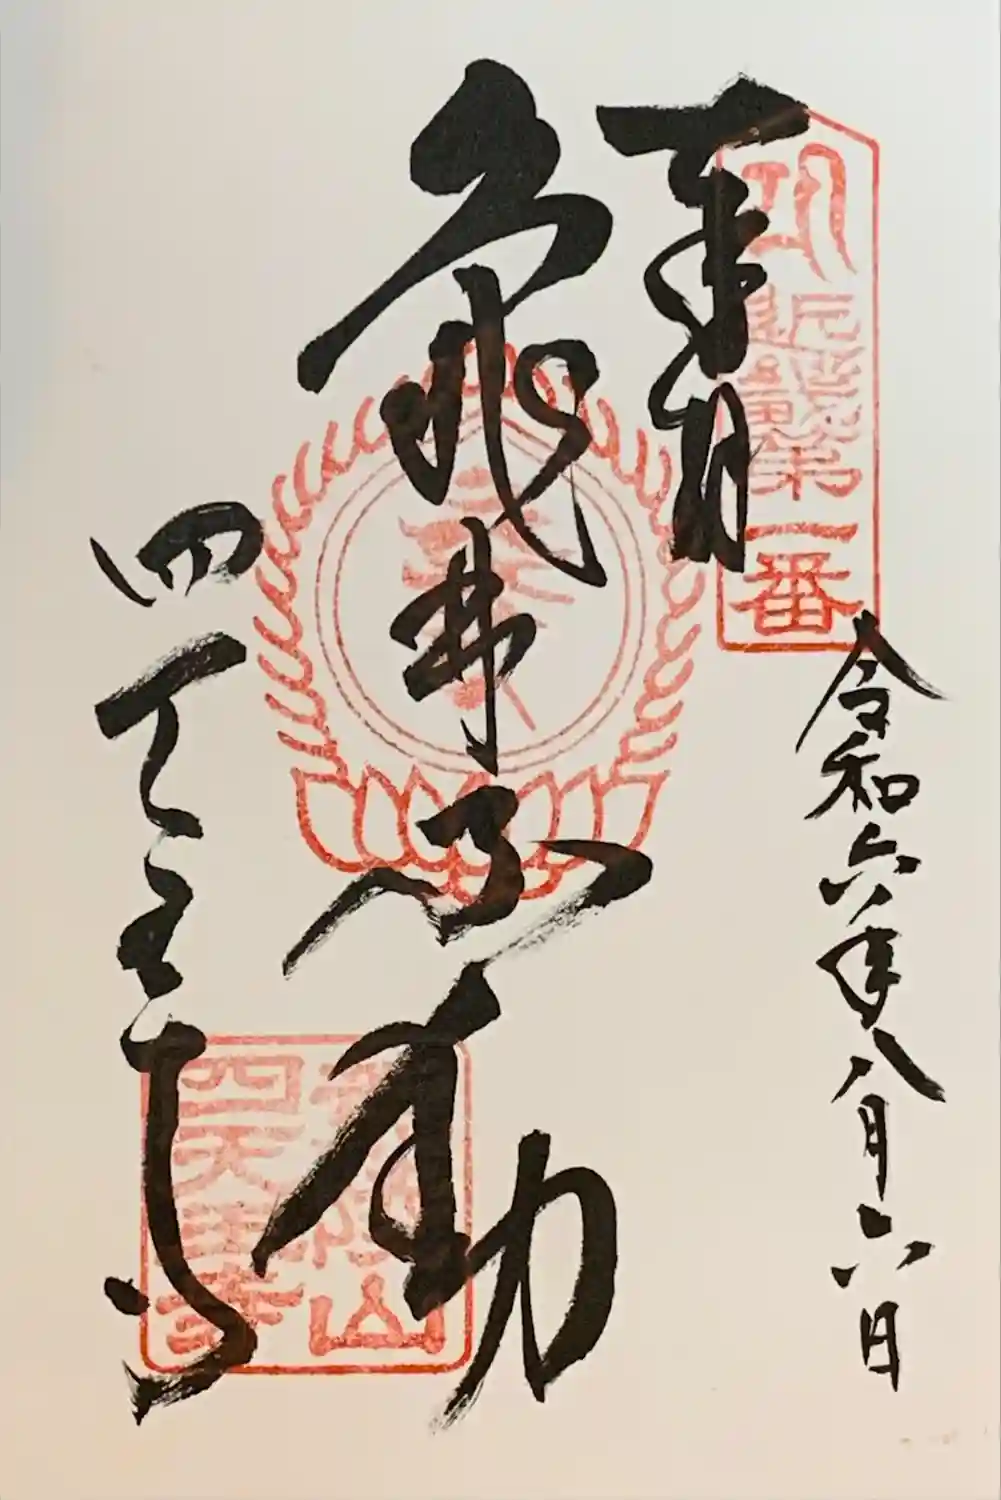 近畿第一番
奉拝
令和六年八月六日
亀井不動
四天王寺
四天王寺